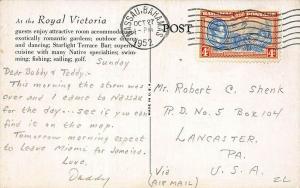 At the Royal Victoria
guests enjoy attractive room accommodations,
exotically romantic gardens; outdoor
and dancing; Starlight Terrace Bar; superb
cuisine with many Native specialties; swim-
ming; fishing; sailing; golf.
NASSAU · BAHAMAS
OCT 27
PM
1952
POST
Sunday
Dear Bobby & Teddy:-
This morning the storm was
over and I came to Nassau
for the day --- see if you can
find it on the map.
Tomorrow morning expect
to leave Miami for Jamaica.
Love,
Daddy
4D
Mr. Robert C. Shenk
R. D. No. 5 Box 104
LANCASTER,
PA.
Via
(AIR MAIL)
U. S. A.